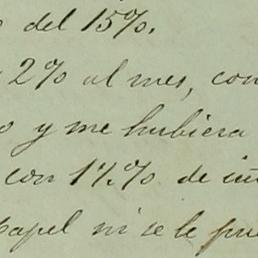 del 15%.
2% al mes, con
o y me hubiera
con 1½% de in
papel ni se le pu